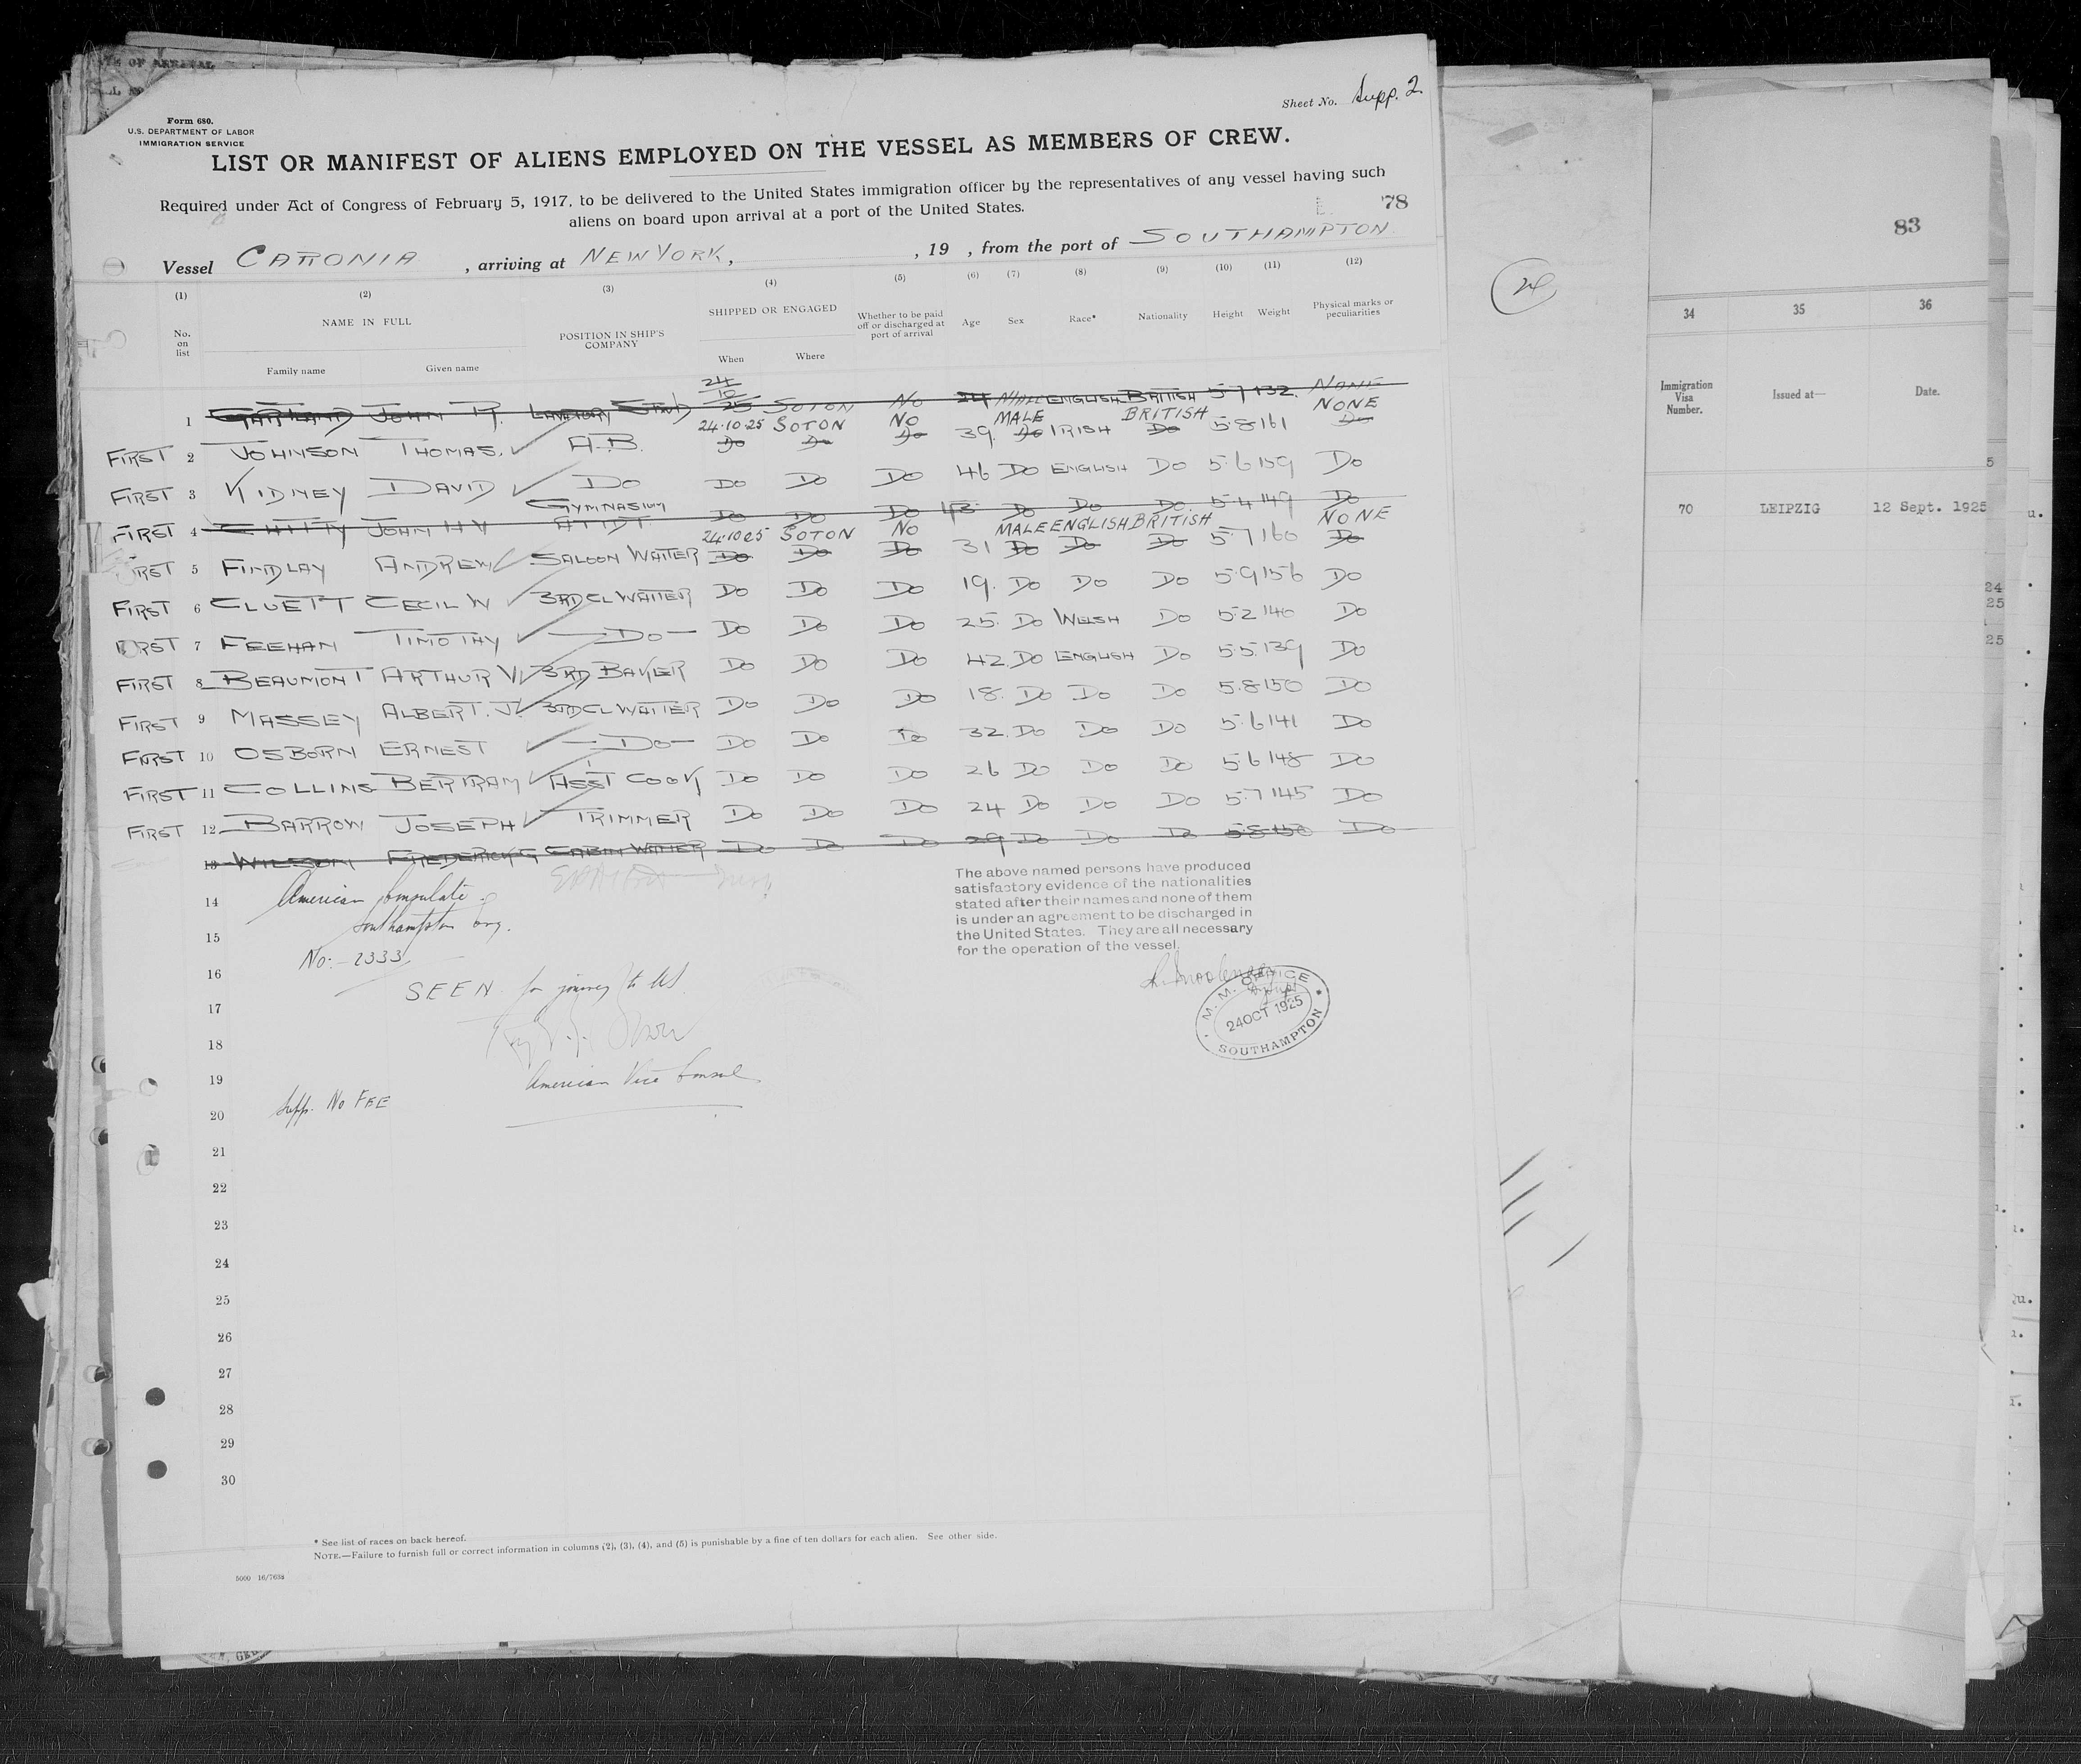 TE OF ARRIVAL
Sheet No. Supp. 2
Form 680.
U.S. DEPARTMENT OF LABOR
IMMIGRATION SERVICE
LIST OR MANIFEST OF ALIENS EMPLOYED ON THE VESSEL AS MEMBERS OF CREW.
Required under Act of Congress of February 5, 1917, to be delivered to the United States immigration officer by the representatives of any vessel having such
aliens on board upon arrival at a port of the United States.
78
Vessel CARONIA , arriving at NEW YORK, , 19 , from the port of SOUTHAMPTON
(1) (2) (3) (4) (5) (6) (7) (8) (9) (10) (11) (12)
No. on list NAME IN FULL Family name Given name POSITION IN SHIP'S COMPANY SHIPPED OR ENGAGED When Where Whether to be paid off or discharged at port of arrival Age Sex Race* Nationality Height Weight Physical marks or peculiarities
1 GARTLAND JOHN R. LAVATORY STWD 24 10 25 SOTON No 24 MALE ENGLISH BRITISH 5-7 132. NONE
24.10.25 SOTON No MALE BRITISH NONE
FIRST 2 JOHNSON THOMAS. A.B. Do Do Do 39. Do IRISH Do 5.8 161 Do
FIRST 3 KIDNEY DAVID Do Do Do Do 46 Do ENGLISH Do 5.6 159 Do
FIRST 4 CHITTY JOHN H V GYMNASIUM ATTDT Do Do Do Do Do Do 5.4 149 Do
24.10.25 SOTON No MALE ENGLISH BRITISH NONE
FIRST 5 FINDLAY ANDREW SALOON WAITER Do Do Do 31 Do Do Do 5.7 160 Do
FIRST 6 CLUETT CECIL W 3RD CL WAITER Do Do Do 19. Do Do Do 5.9 156 Do
FIRST 7 FEEHAN TIMOTHY —Do— Do Do Do 25. Do WELSH Do 5.2 140 Do
FIRST 8 BEAUMONT ARTHUR W 3RD BAKER Do Do Do 42. Do ENGLISH Do 5.5. 139 Do
FIRST 9 MASSEY ALBERT. J. 3RD CL WAITER Do Do Do 18. Do Do Do 5.8 150 Do
FIRST 10 OSBORN ERNEST —Do— Do Do Do 32. Do Do Do 5.6 141 Do
FIRST 11 COLLINS BERTRAM ASST COOK Do Do Do 26 Do Do Do 5.6 148 Do
FIRST 12 BARROW JOSEPH TRIMMER Do Do Do 24 Do Do Do 5.7 145 Do
13 WILSON FREDERICK G CABIN WAITER Do Do Do 29 Do Do Do Do
14 American Consulate
15 Southampton Eng.
16 No:- 2333
17 SEEN for journey to US
18
19 American Vice Consul
20 Supp. No FEE
21
22
23
24
25
26
27
28
29
30
The above named persons have produced
satisfactory evidence of the nationalities
stated after their names and none of them
is under an agreement to be discharged in
the United States. They are all necessary
for the operation of the vessel.
M. M. OFFICE
24 OCT 1925
SOUTHAMPTON
* See list of races on back hereof.
NOTE.—Failure to furnish full or correct information in columns (2), (3), (4), and (5) is punishable by a fine of ten dollars for each alien. See other side.
5000 16/7638
83
34 35 36
Immigration Visa Number. Issued at— Date.
70 LEIPZIG 12 Sept. 1925
5
24
25
25
u.